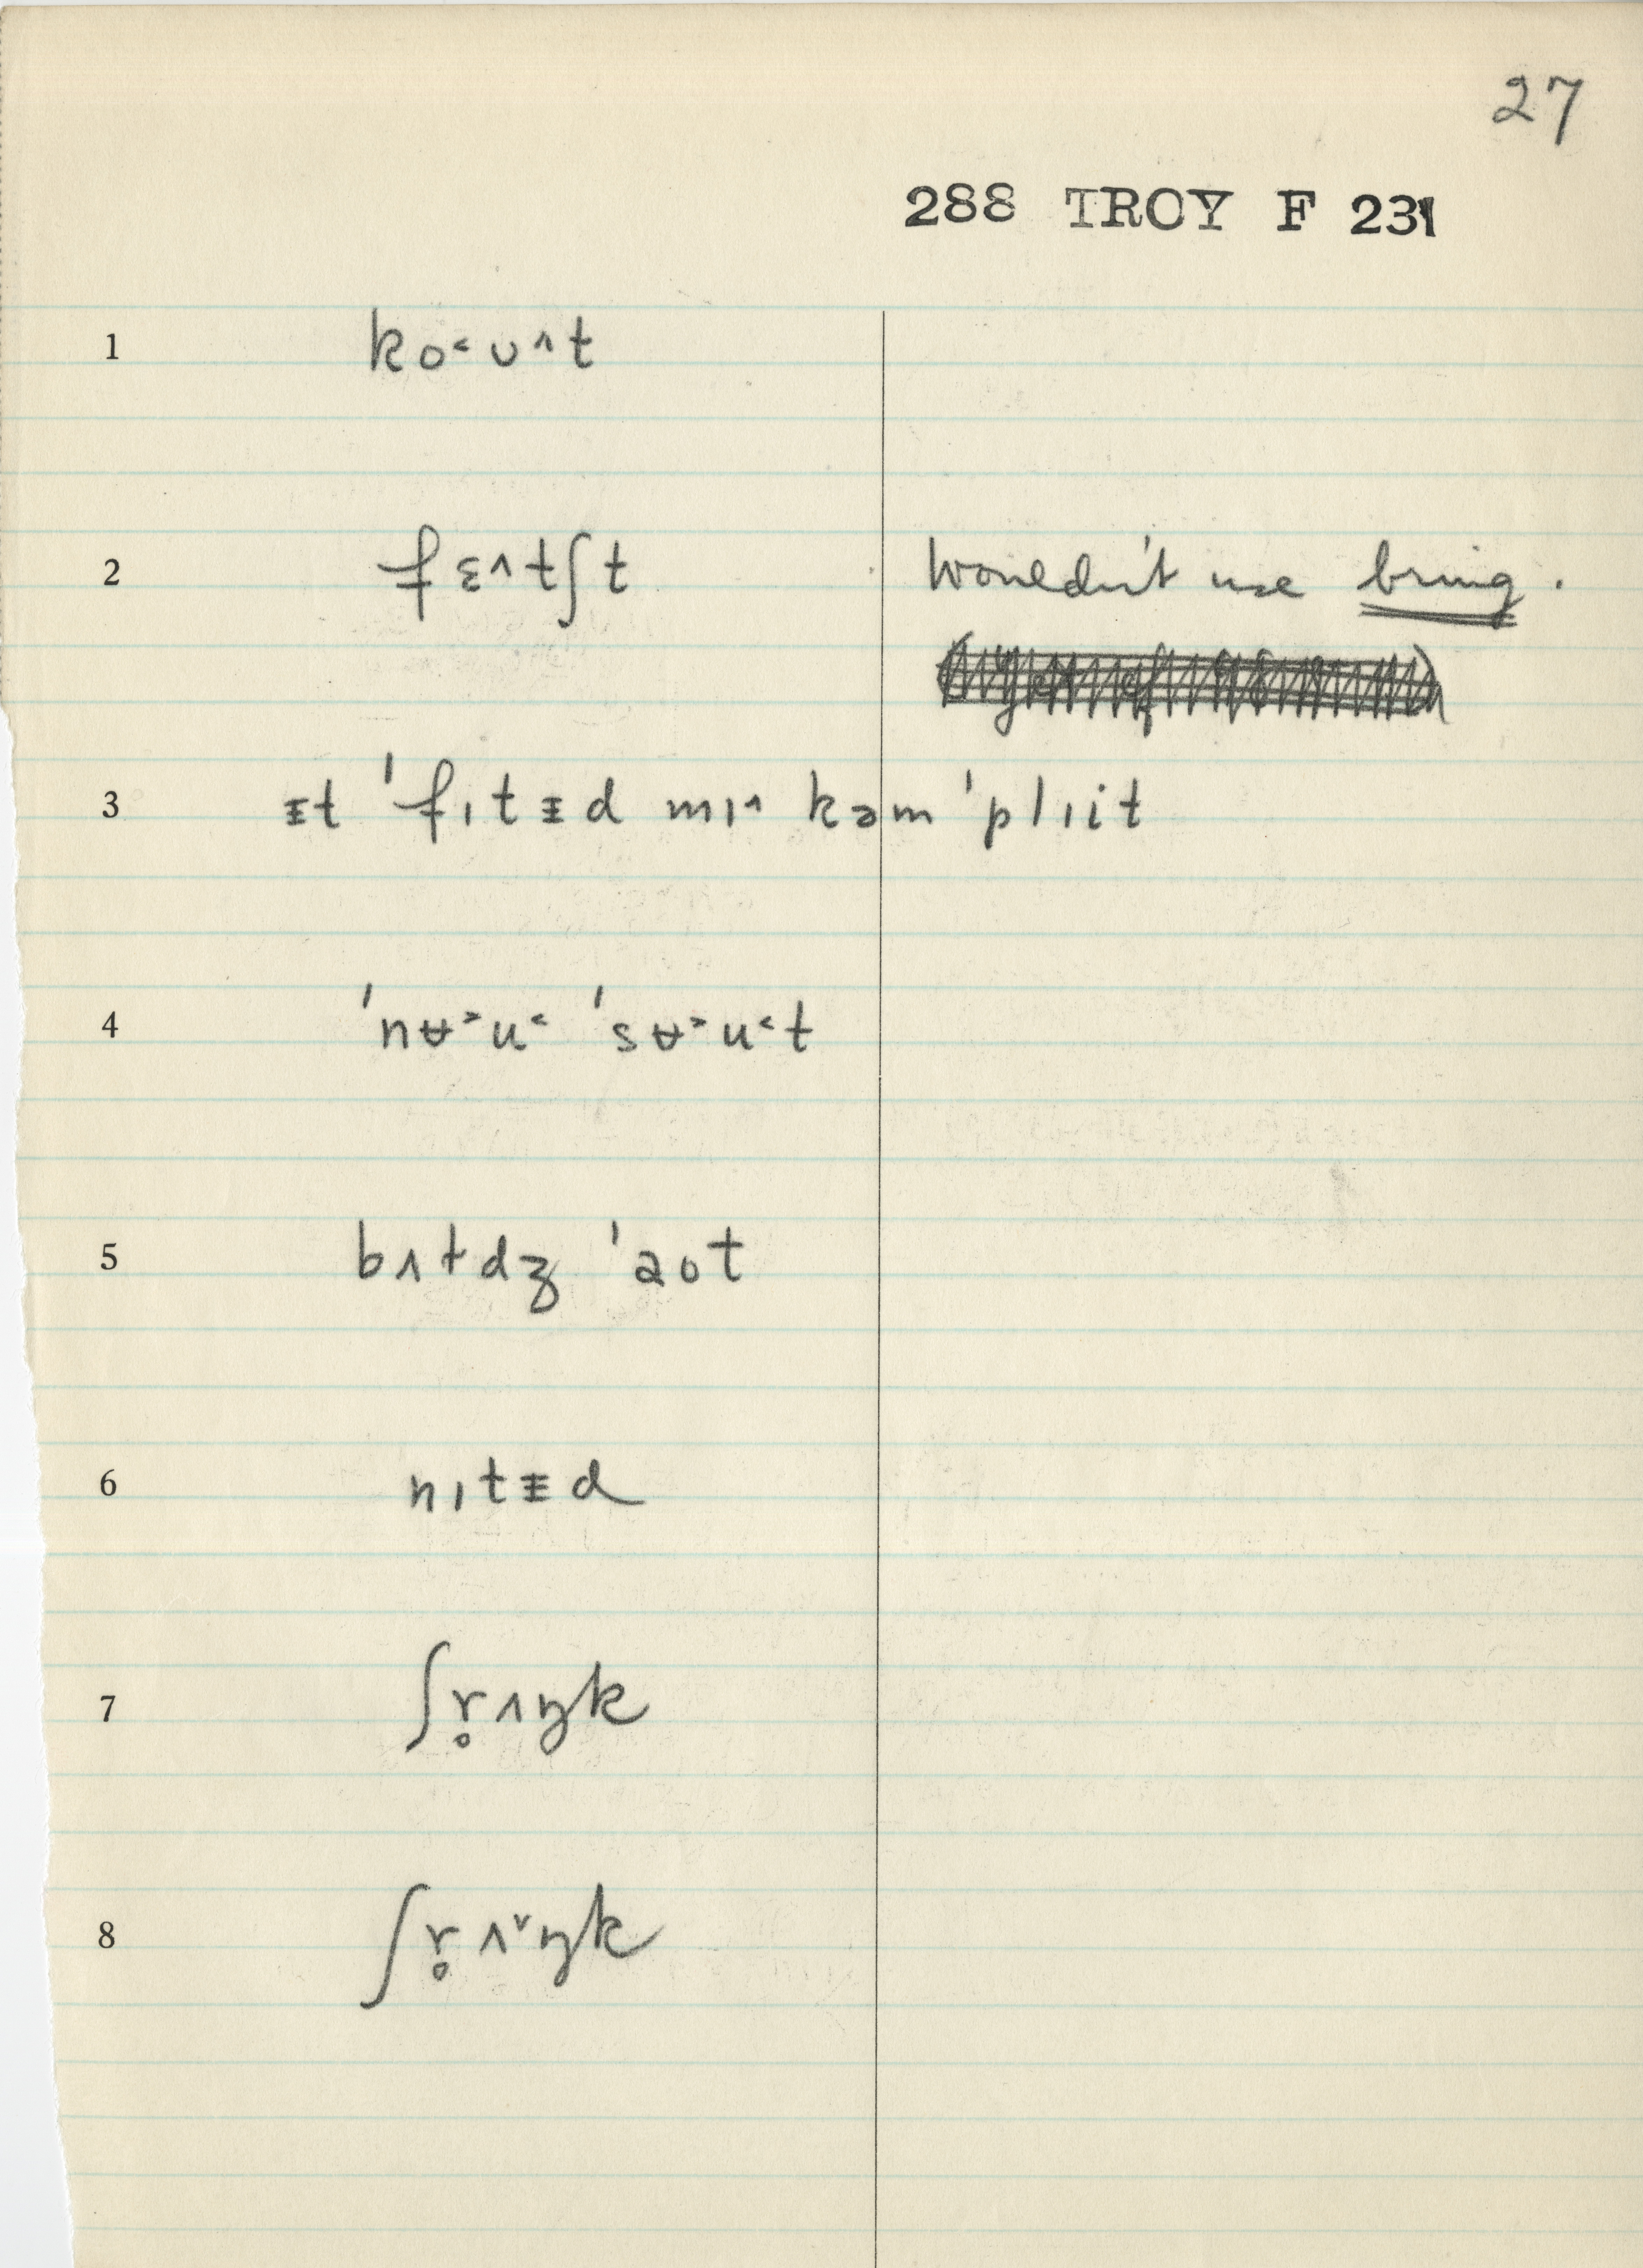 27
288 TROY F 231
1 ko˂ʊ˄t
2 fɛ˄tʃt Wouldn't use bring.
3 ᵻt ˈfɪtᵻd mɪ˄ kəmˈplɪit
4 ˈnɵ˃u˂ ˈsɵ˃u˂t
5 bʌtdʒ ˈaʊt
6 nɪtᵻd
7 ʃr̥ʌŋk
8 ʃr̥ʌ˅ŋk